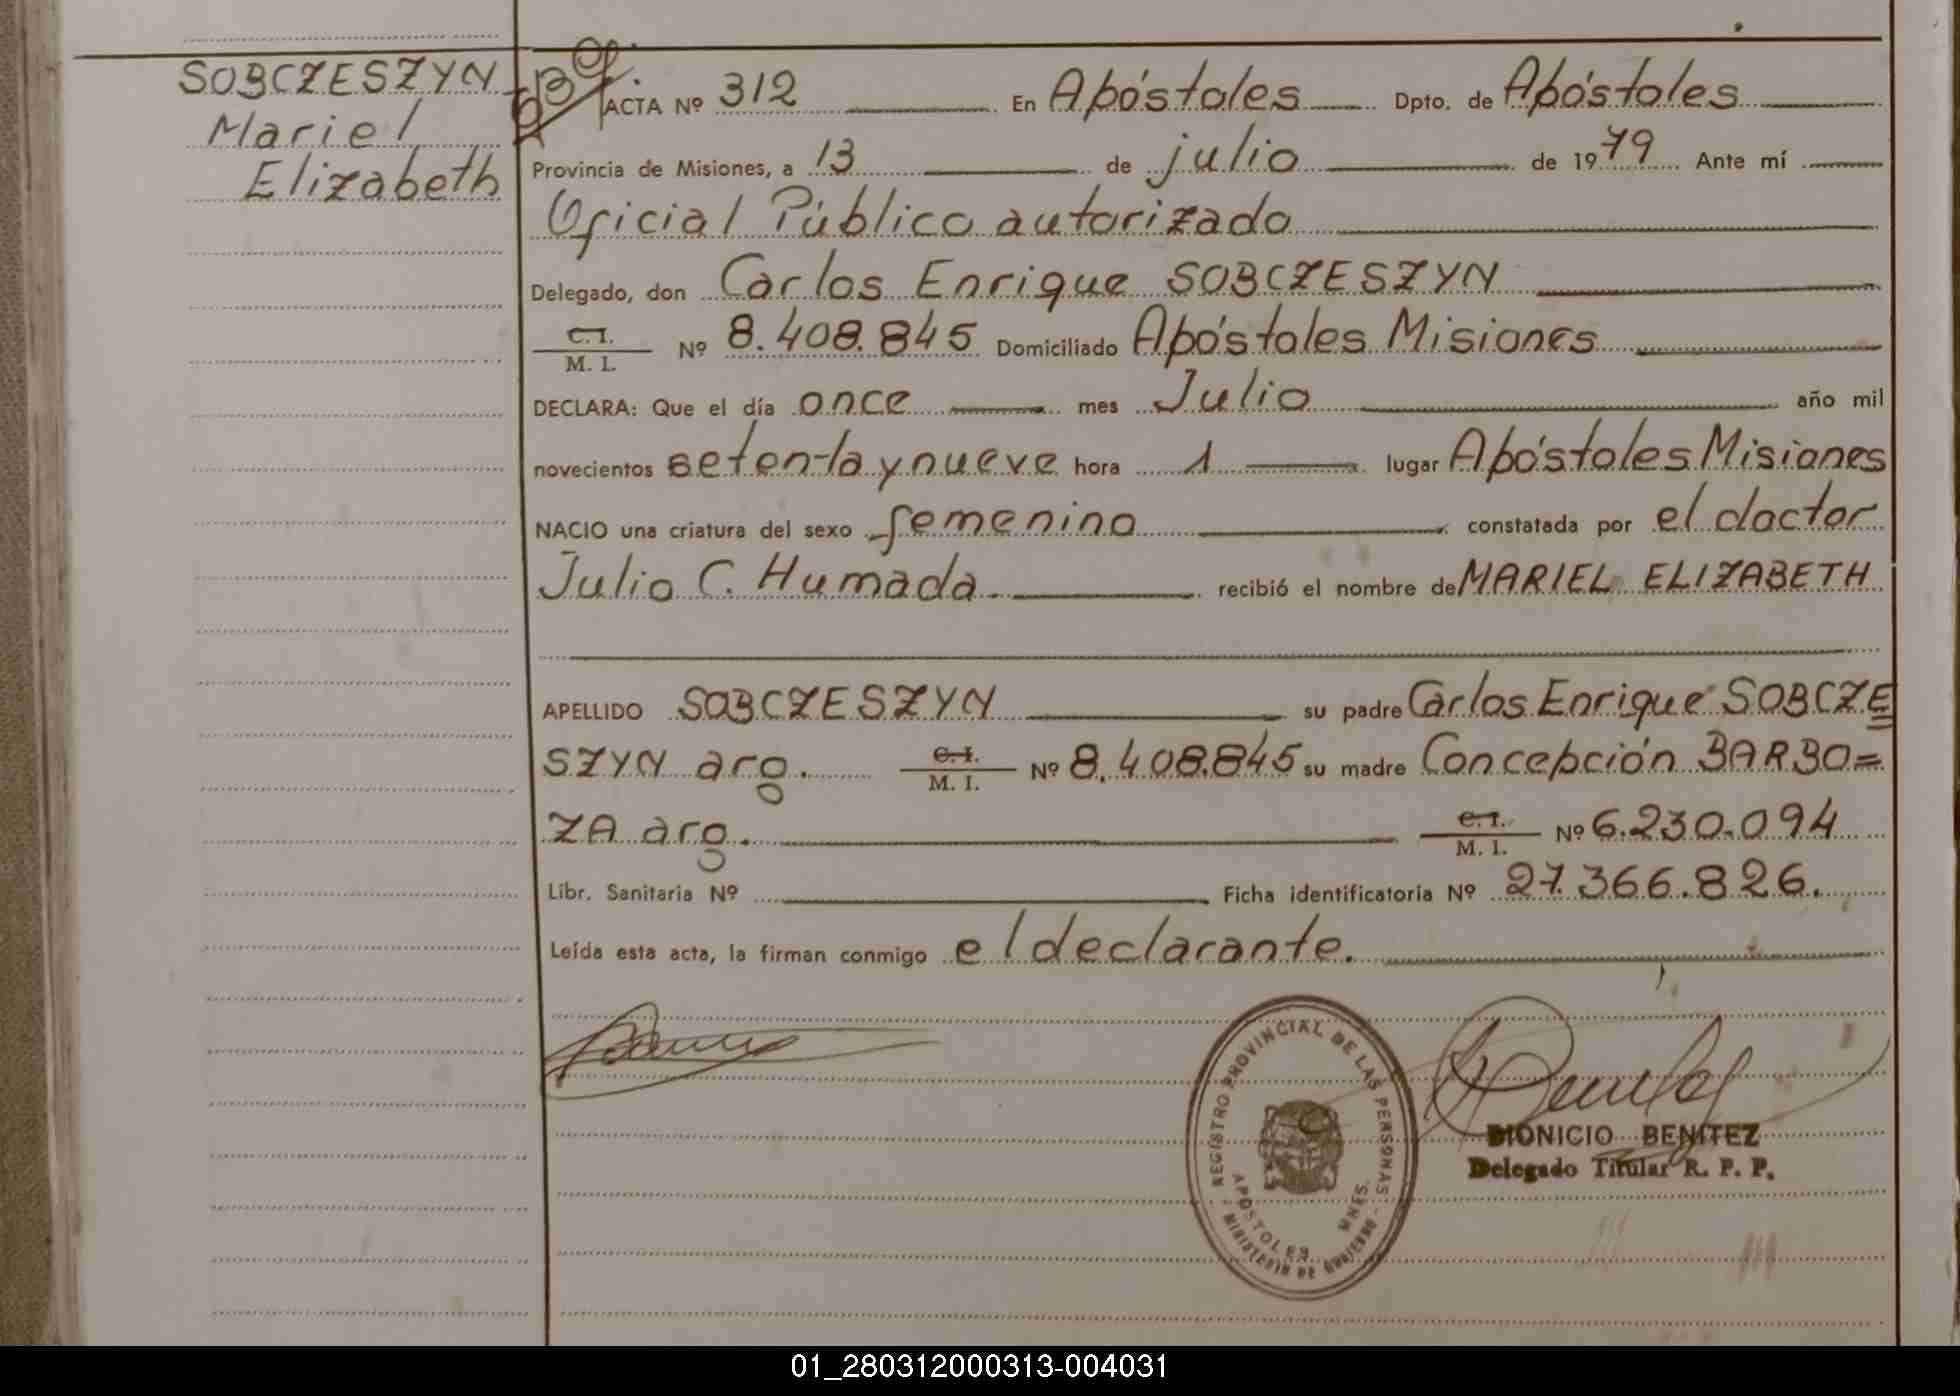 SOBCZESZYN
Mariel
Elizabeth
ACTA Nº 312 En Apóstoles Dpto. de Apóstoles
Provincia de Misiones, a 13 de julio de 1979 Ante mí
Oficial Público autorizado
Delegado, don Carlos Enrique SOBCZESZYN
C.I.
M. I. Nº 8.408.845 Domiciliado Apóstoles Misiones
DECLARA: Que el día once mes Julio año mil
novecientos setenta y nueve hora 1 lugar Apóstoles Misiones
NACIO una criatura del sexo femenino constatada por el doctor
Julio C. Humada recibió el nombre de MARIEL ELIZABETH
APELLIDO SOBCZESZYN su padre Carlos Enrique SOBCZE
SZYN arg. C.I. M. I. Nº 8.408.845 su madre Concepción BARBO=
ZA arg. C.I. M. I. Nº 6.230.094
Libr. Sanitaria Nº Ficha identificatoria Nº 27.366.826.
Leída esta acta, la firman conmigo el declarante.
REGISTRO PROVINCIAL DE LAS PERSONAS
APOSTOLES MNES.
MINISTERIO DE GOBIERNO
DIONICIO BENITEZ
Delegado Titular R. P. P.
01_280312000313-004031